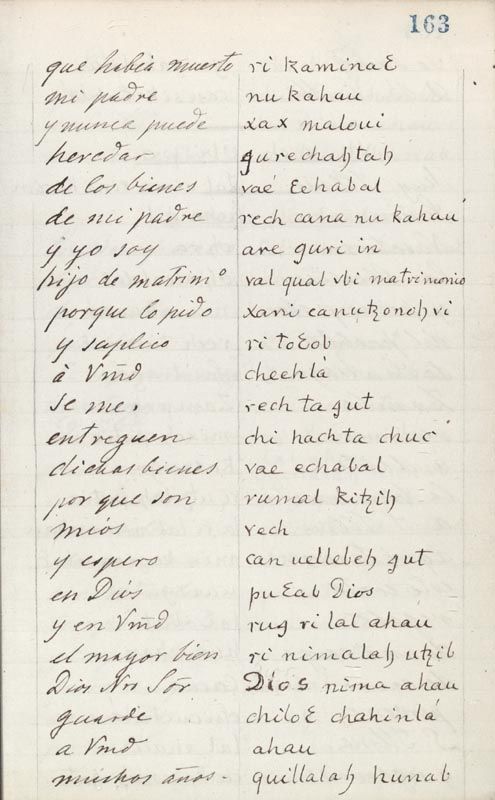 163
que habia muerto ri kaminaƐ
mi padre nu kahau
y nunca puede xax maloui
heredar qurechaḩtaḩ
de los bienes vaé Ɛchabal
de mi padre rech cana nu kahau
y yo soy are guri in
hijo de matrim.º val qual vbi matrimonio
porque lo pido xavi canutzonoḩ vi
y suplico ri toƐob
à Vm̃d cheehlá
se me. rech ta gut
entreguen chi hachta chuc
dichas bienes vae echabal
por que son rumal kitziḩ
mios vech
y espero can uellebeḩ gut
en Dios puƐab Dios
y en Vm̃d rug ri lal ahau
el mayor bien ri nimalaḩ utzil
Dios Nrs Sõr. Dios nima ahau
guarde chiloƐ chahinlá
a Vm̃d ahau
muchos años. quillalaḩ hunab